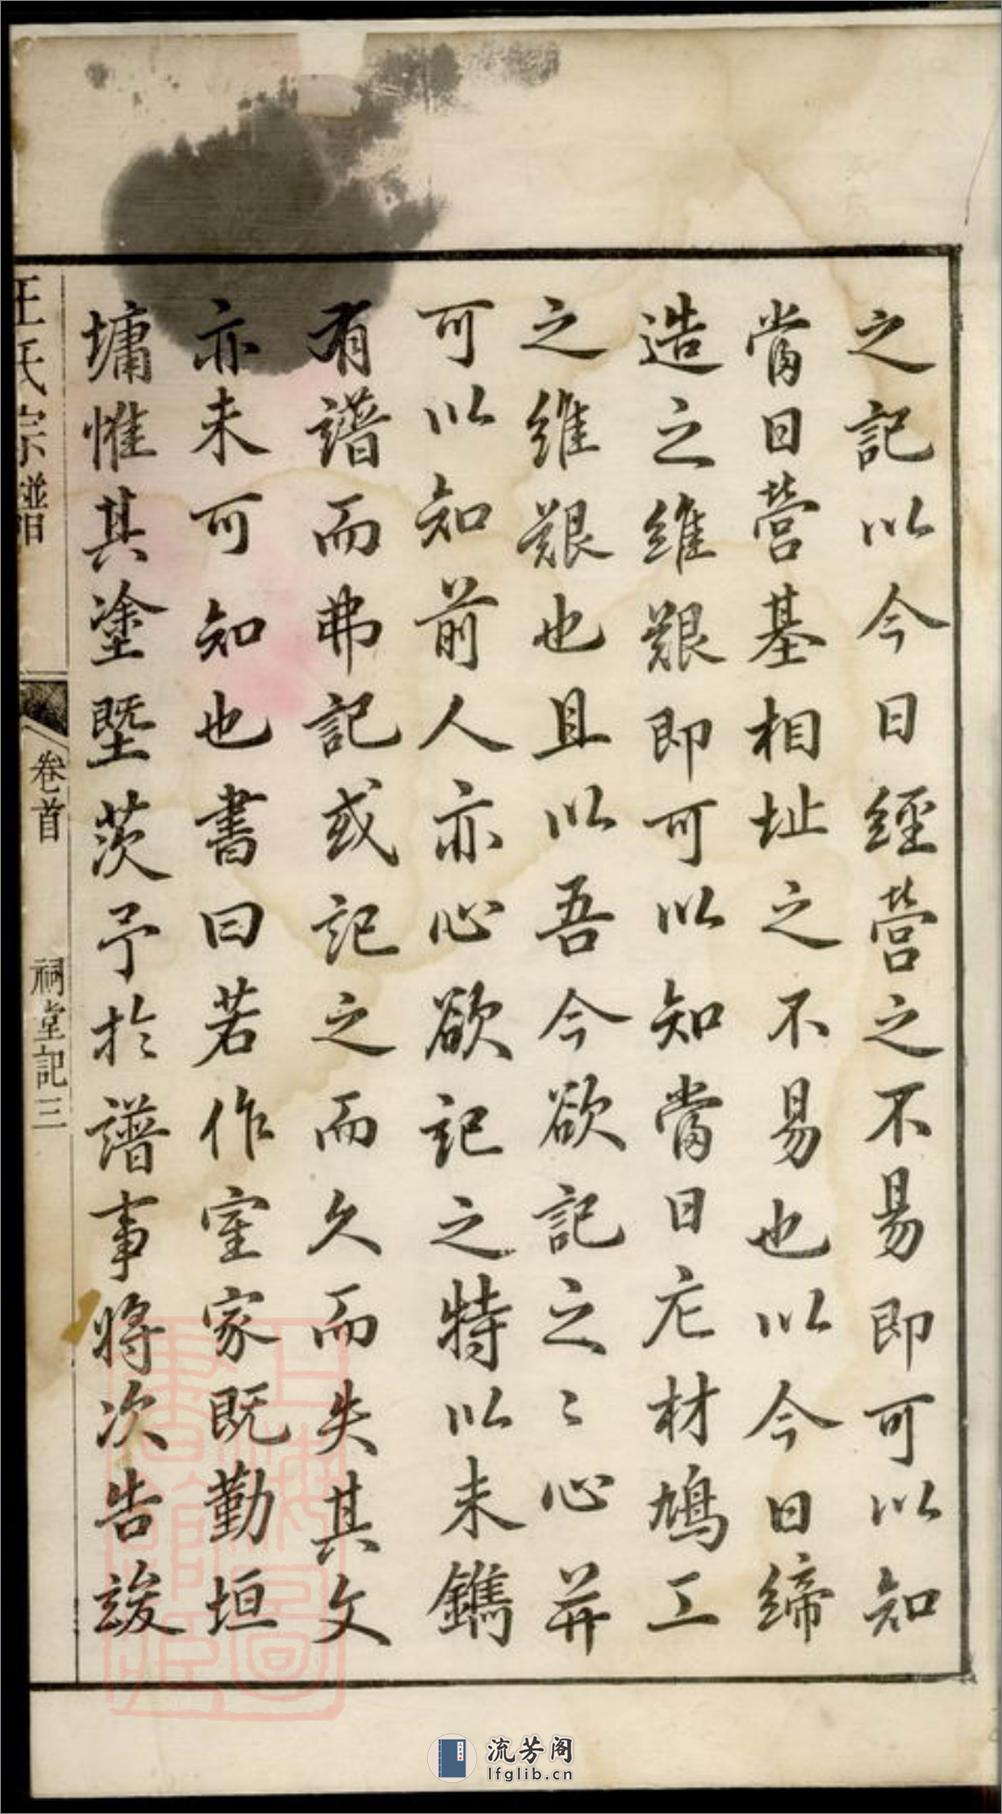 之記以今日經營之不易即可以知
當日營基相址之不易也以今日締
造之維艱即可以知當日庀材鳩工
之維艱也且以吾今欲記之之心并
可以知前人亦心欲記之特以未鐫
有譜而弗記或記之而久而失其文
亦未可知也書曰若作室家既勤垣
墉惟其塗塈茨予於譜事將次告竣
王氏宗譜
卷首
祠堂記三
上海圖書館藏
流芳阁
lfglib.cn